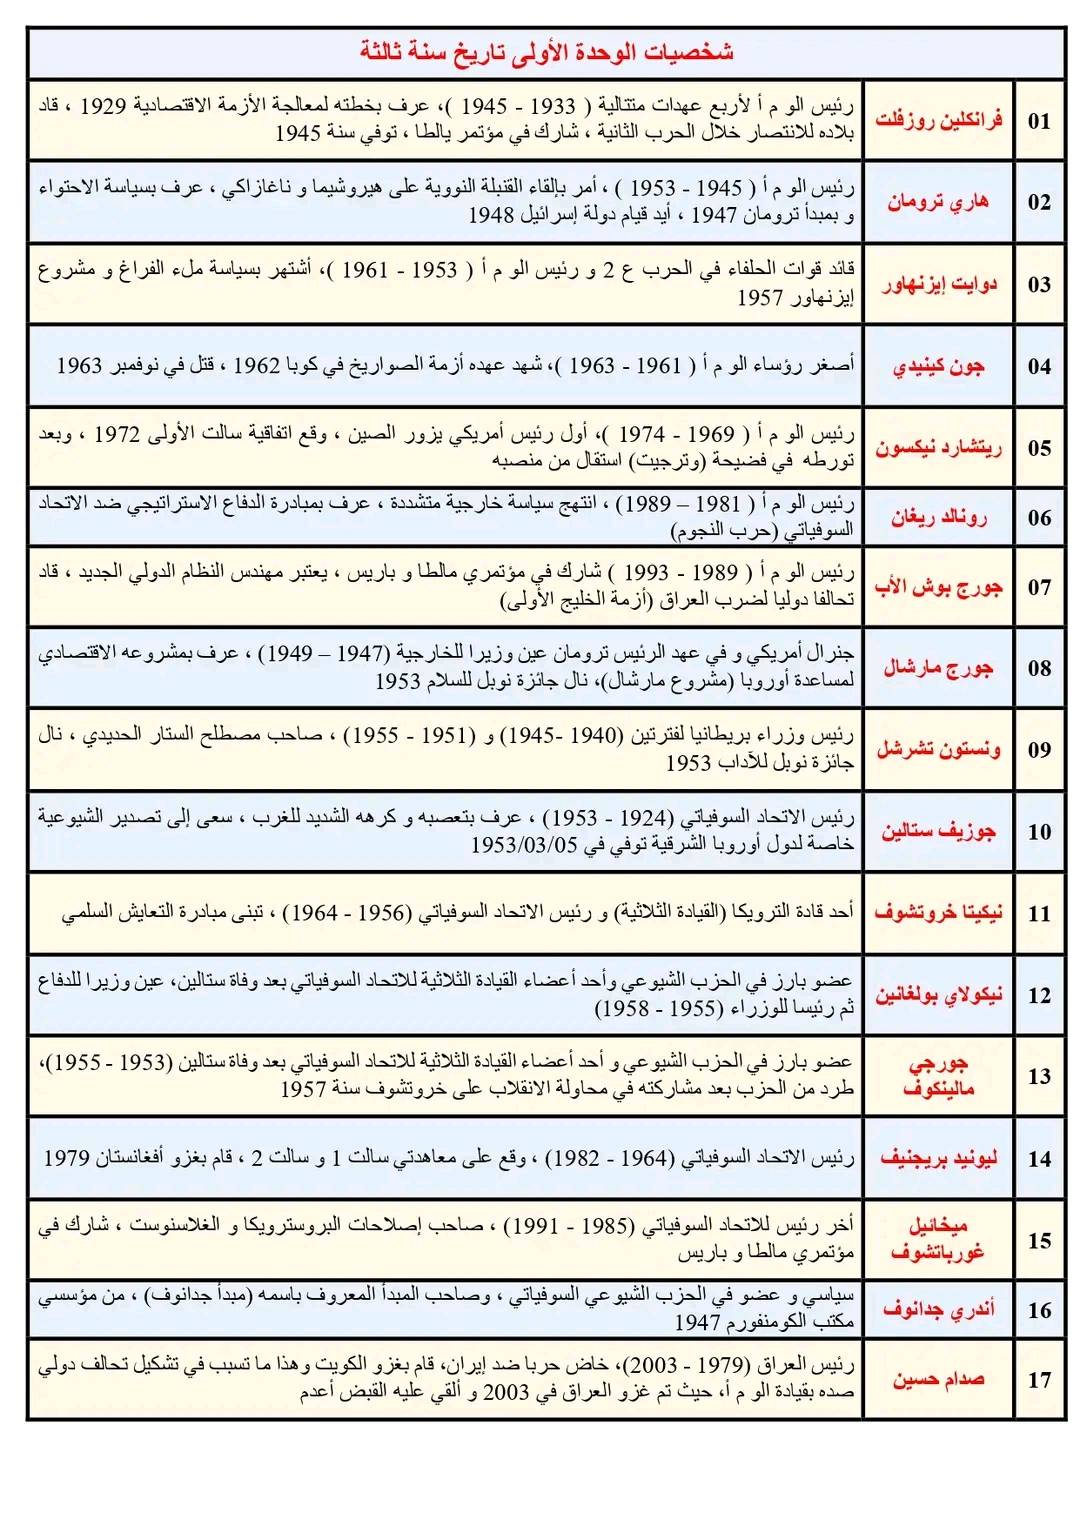 شخصيات الوحدة الأولى تاريخ سنة ثالثة
01
فرانكلين روزفلت
رئيس الو م أ لأربع عهدات متتالية ( 1933 - 1945 )، عرف بخطته لمعالجة الأزمة الاقتصادية 1929 ، قاد
بلاده للانتصار خلال الحرب الثانية ، شارك في مؤتمر يالطا ، توفي سنة 1945
02
هاري ترومان
رئيس الو م أ ( 1945 - 1953 ) ، أمر بإلقاء القنبلة النووية على هيروشيما و ناغازاكي ، عرف بسياسة الاحتواء
و بمبدأ ترومان 1947 ، أيد قيام دولة إسرائيل 1948
03
دوايت إيزنهاور
قائد قوات الحلفاء في الحرب ع 2 و رئيس الو م أ ( 1953 - 1961 )، أشتهر بسياسة ملء الفراغ و مشروع
إيزنهاور 1957
04
جون كينيدي
أصغر رؤساء الو م أ ( 1961 - 1963 )، شهد عهده أزمة الصواريخ في كوبا 1962 ، قتل في نوفمبر 1963
05
ريتشارد نيكسون
رئيس الو م أ ( 1969 - 1974 )، أول رئيس أمريكي يزور الصين ، وقع اتفاقية سالت الأولى 1972 ، وبعد
تورطه في فضيحة (وترجيت) استقال من منصبه
06
رونالد ريغان
رئيس الو م أ ( 1981 – 1989) ، انتهج سياسة خارجية متشددة ، عرف بمبادرة الدفاع الاستراتيجي ضد الاتحاد
السوفياتي (حرب النجوم)
07
جورج بوش الأب
رئيس الو م أ ( 1989 - 1993 ) شارك في مؤتمري مالطا و باريس ، يعتبر مهندس النظام الدولي الجديد ، قاد
تحالفا دوليا لضرب العراق (أزمة الخليج الأولى)
08
جورج مارشال
جنرال أمريكي و في عهد الرئيس ترومان عين وزيرا للخارجية (1947 – 1949) ، عرف بمشروعه الاقتصادي
لمساعدة أوروبا (مشروع مارشال)، نال جائزة نوبل للسلام 1953
09
ونستون تشرشل
رئيس وزراء بريطانيا لفترتين (1940 -1945) و (1951 - 1955) ، صاحب مصطلح الستار الحديدي ، نال
جائزة نوبل للآداب 1953
10
جوزيف ستالين
رئيس الاتحاد السوفياتي (1924 - 1953) ، عرف بتعصبه و كرهه الشديد للغرب ، سعى إلى تصدير الشيوعية
خاصة لدول أوروبا الشرقية توفي في 1953/03/05
11
نيكيتا خروتشوف
أحد قادة الترويكا (القيادة الثلاثية) و رئيس الاتحاد السوفياتي (1956 - 1964) ، تبنى مبادرة التعايش السلمي
12
نيكولاي بولغانين
عضو بارز في الحزب الشيوعي وأحد أعضاء القيادة الثلاثية للاتحاد السوفياتي بعد وفاة ستالين، عين وزيرا للدفاع
ثم رئيسا للوزراء (1955 - 1958)
13
جورجي
مالينكوف
عضو بارز في الحزب الشيوعي و أحد أعضاء القيادة الثلاثية للاتحاد السوفياتي بعد وفاة ستالين (1953 - 1955)،
طرد من الحزب بعد مشاركته في محاولة الانقلاب على خروتشوف سنة 1957
14
ليونيد بريجنيف
رئيس الاتحاد السوفياتي (1964 - 1982) ، وقع على معاهدتي سالت 1 و سالت 2 ، قام بغزو أفغانستان 1979
15
ميخائيل
غورباتشوف
أخر رئيس للاتحاد السوفياتي (1985 - 1991) ، صاحب إصلاحات البروسترويكا و الغلاسنوست ، شارك في
مؤتمري مالطا و باريس
16
أندري جدانوف
سياسي و عضو في الحزب الشيوعي السوفياتي ، وصاحب المبدأ المعروف باسمه (مبدأ جدانوف) ، من مؤسسي
مكتب الكومنفورم 1947
17
صدام حسين
رئيس العراق (1979 - 2003)، خاض حربا ضد إيران، قام بغزو الكويت وهذا ما تسبب في تشكيل تحالف دولي
صده بقيادة الو م أ، حيث تم غزو العراق في 2003 و ألقي عليه القبض أعدم